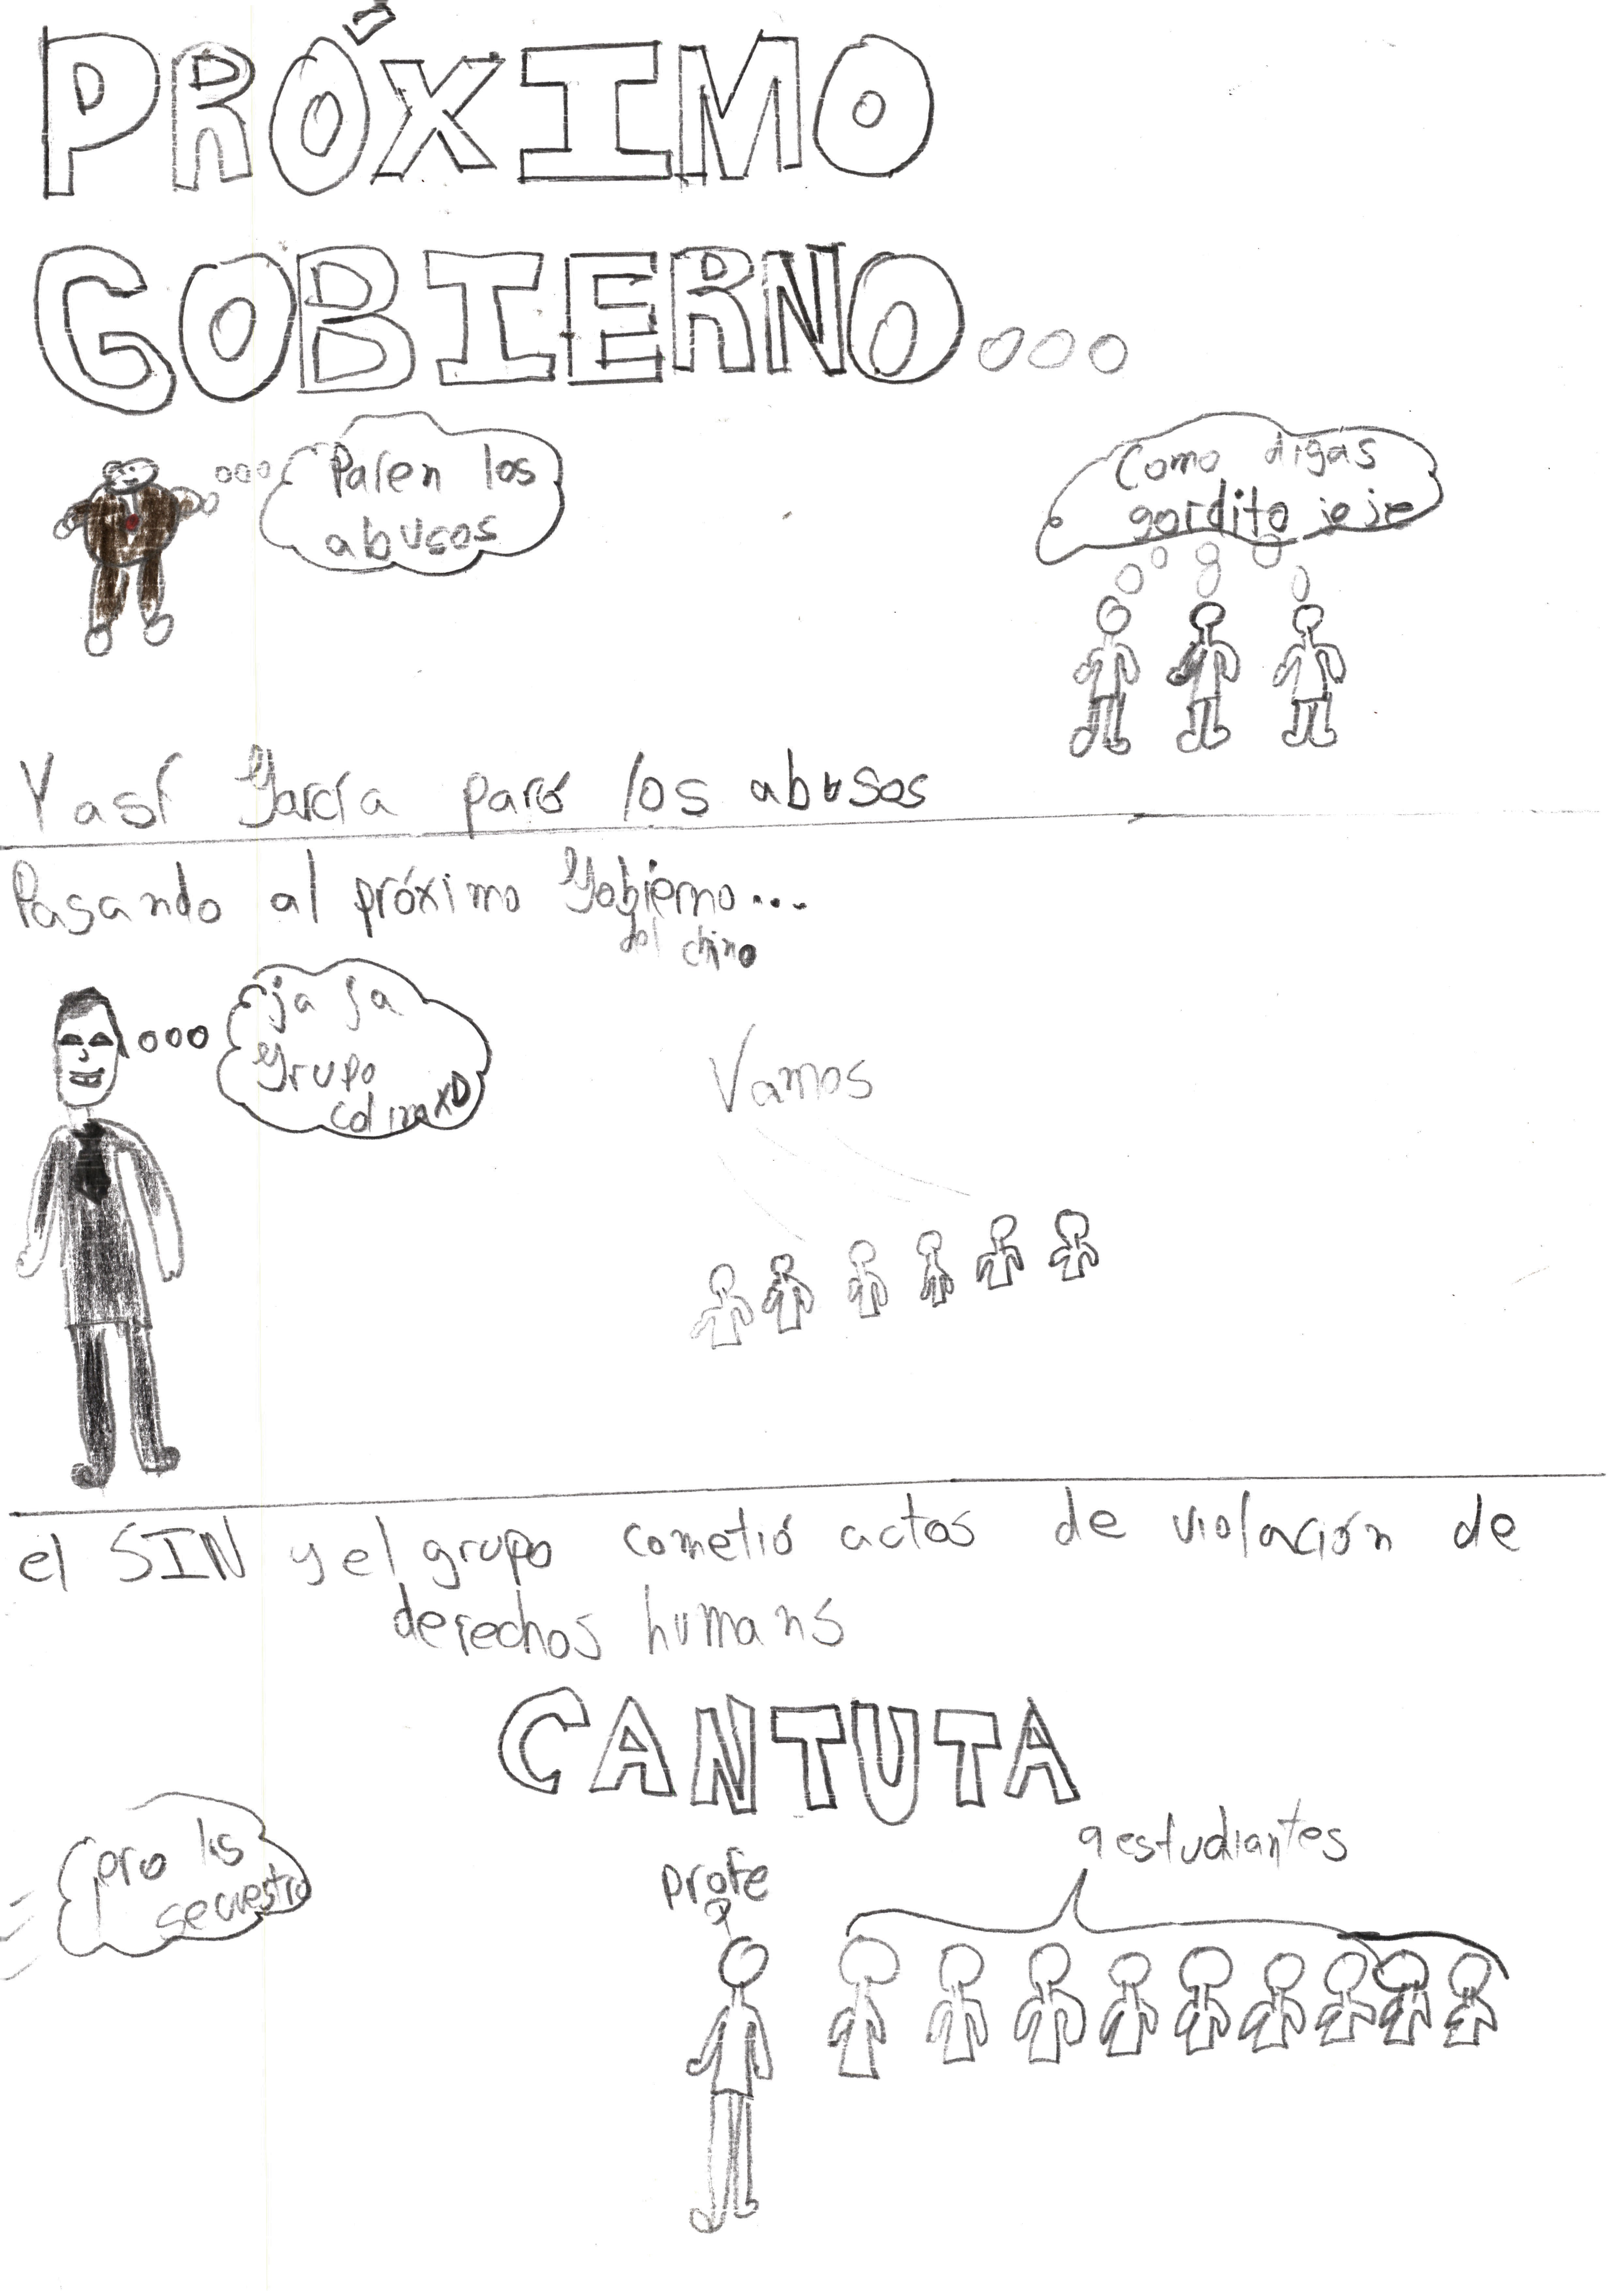 PRÓXIMO
GOBIERNO...
Paren los
abusos
Como digas
gordito jeje
Y así García paró los abusos
Pasando al próximo Gobierno...
del chino
ja ja
Grupo
colina XD
Vamos
el SIN y el grupo cometió actos de violación de
derechos humans
CANTUTA
pro ls
secuestro
profe
9 estudiantes